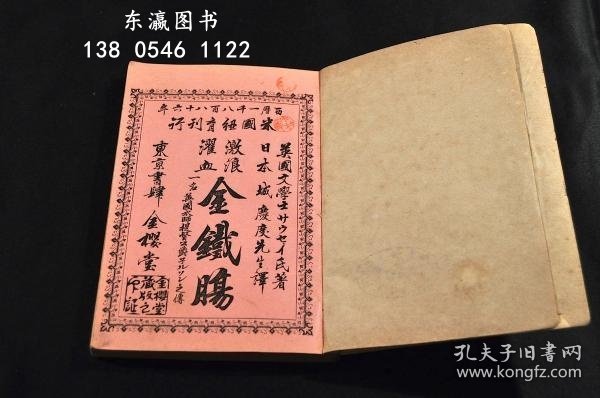 东瀛图书
138 0546 1122
西暦一千八百八十六年
米國紐育刊行
英國文學士サウセイ氏著
日本城慶度先生譯
激浪
濯血
金鐵腸
東京書肆 金櫻堂
金櫻堂
藏版之
印証
孔夫子旧书网
www.kongfz.com